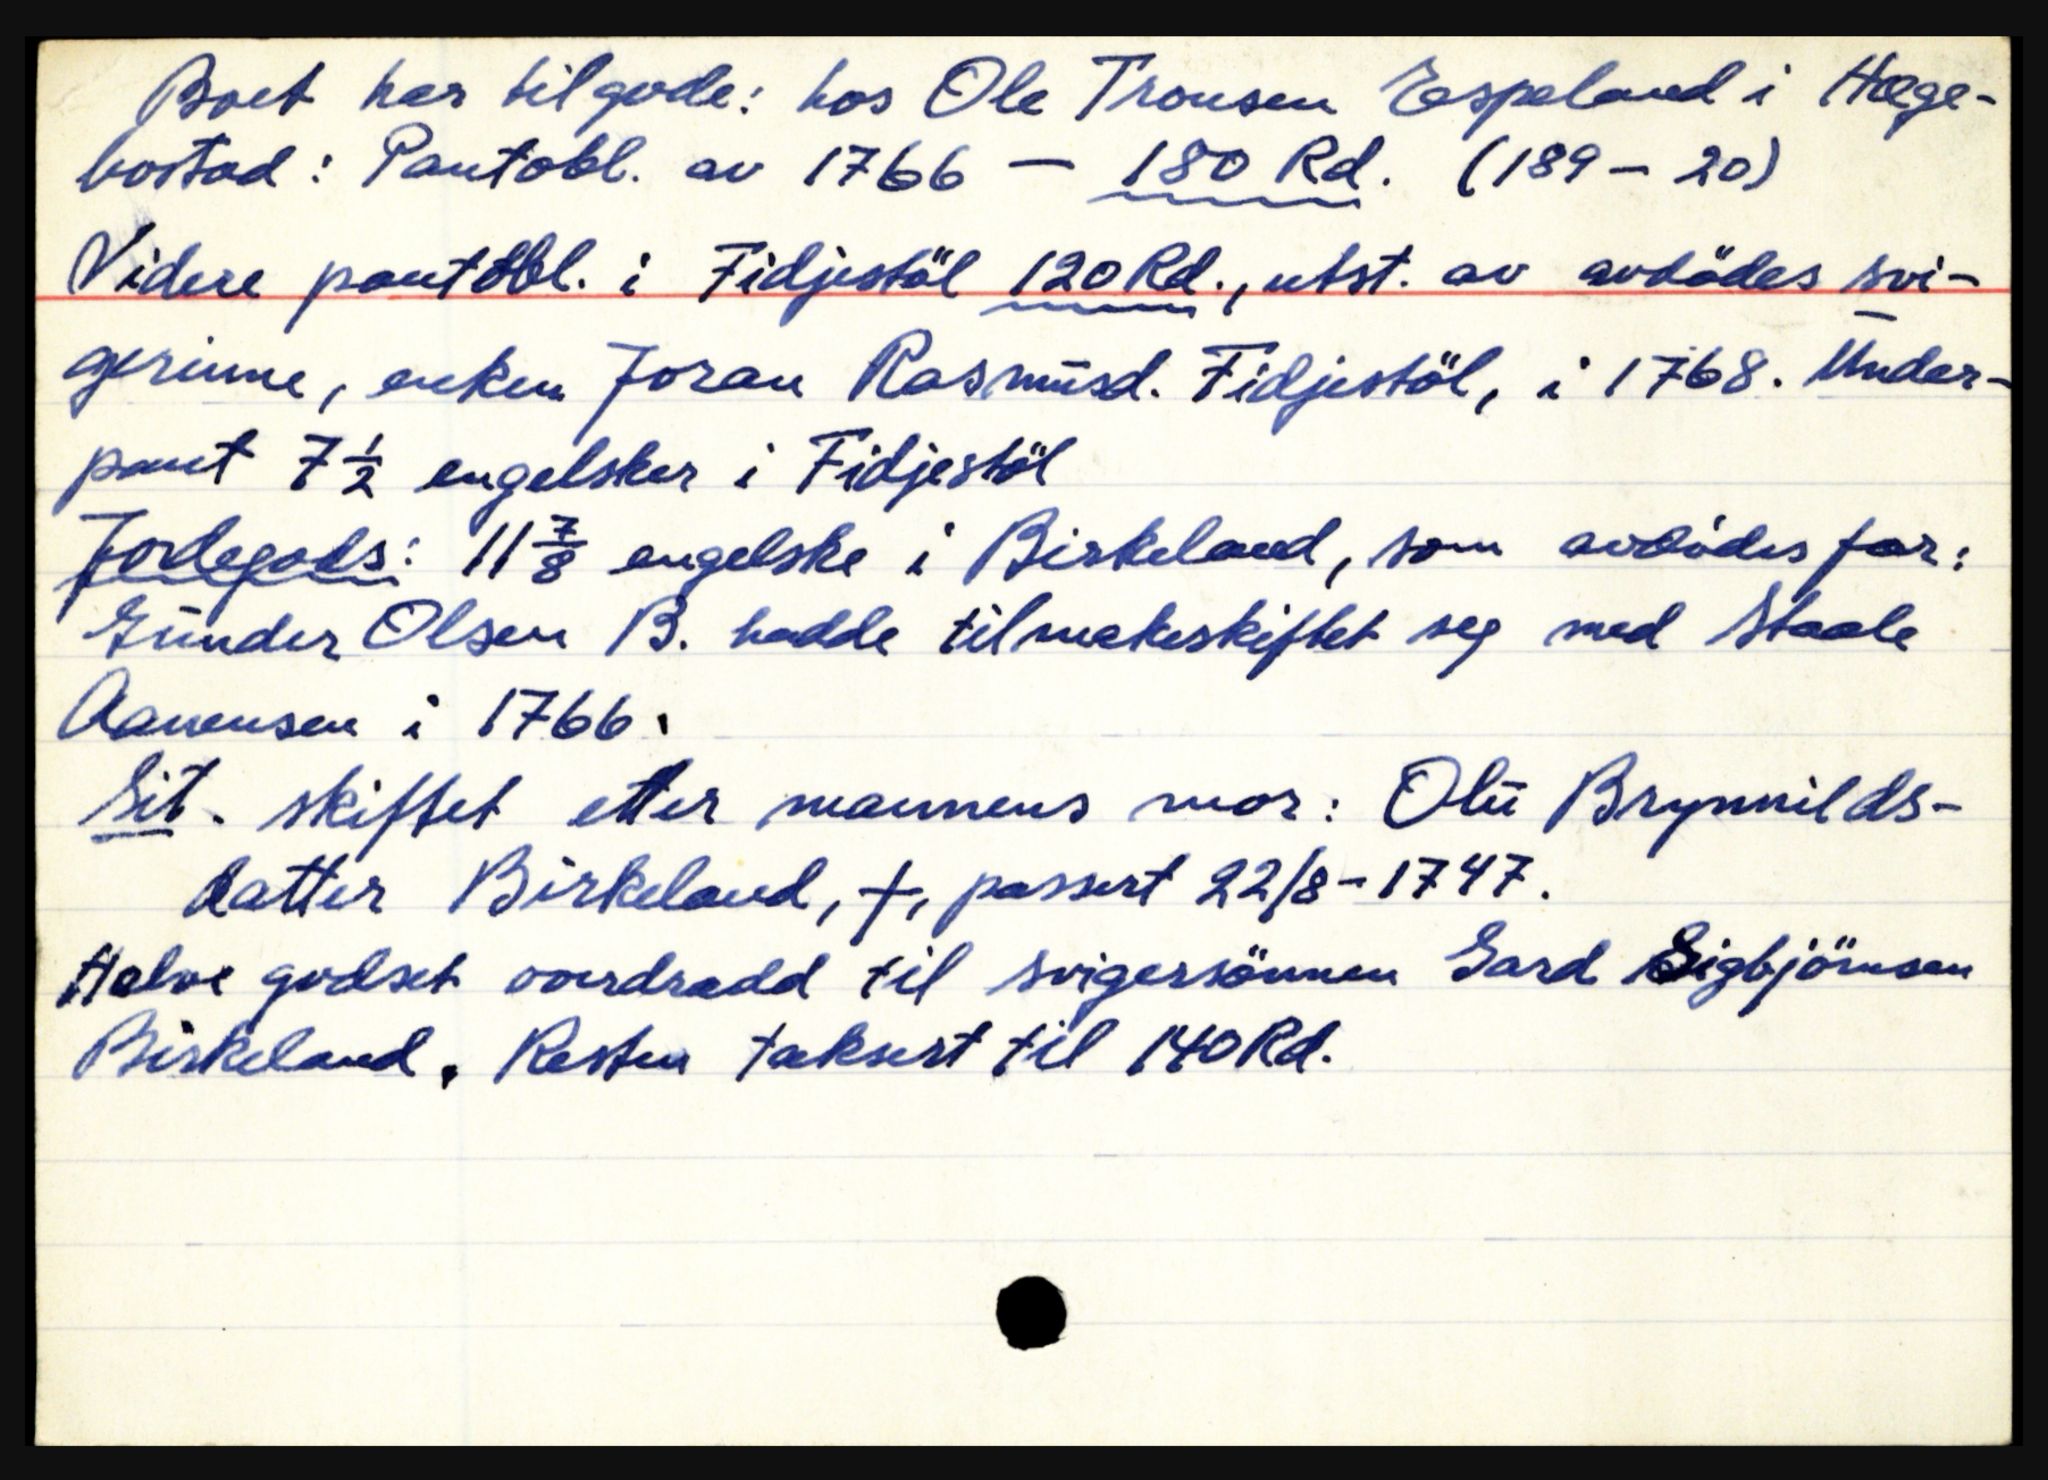 Boet har tilgode: hos Ole Tronsen Espeland i Hæge-
bostad: Pantobl. av 1766 — 180 Rd. (189 - 20)
Videre pantobl. i Fidjestöl 120 Rd., utst. av avdödes svi-
gerinne, enken Joran Rasmüsd. Fidjestöl, i 1768. Under-
pant 7 1/2 engelsker i Fidjestöl
Jordegods: 11 7/8 engelske i Birkeland, som avdödes far:
Günder Olsen B. hadde tilmakeskiftet seg med Staale
Aanensen i 1766.
Sit. skiftet etter mannens mor: Olü Brynnilds-
datter Birkeland, †, passert 22/8-1747.
Halve godset overdradd til svigersönnen Gard Sigbjörnsen
Birkeland. Resten taksert til 140 Rd.